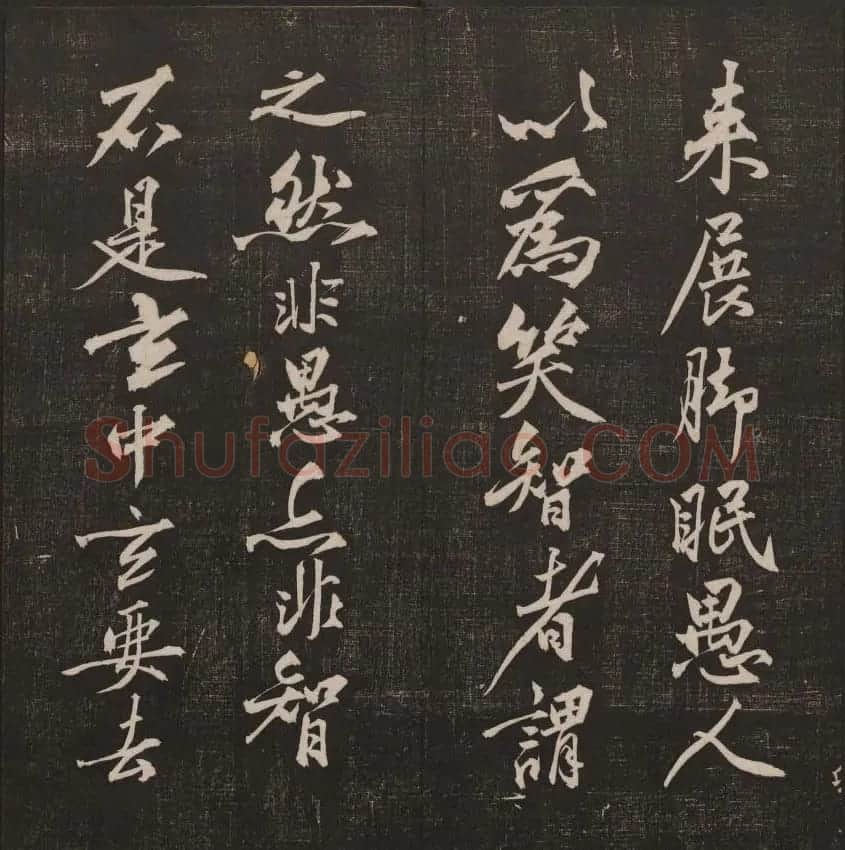 来展脚眠愚人
以為笑智者謂
之然非愚亦非智
不是玄中玄要去
Shufaziliao.COM